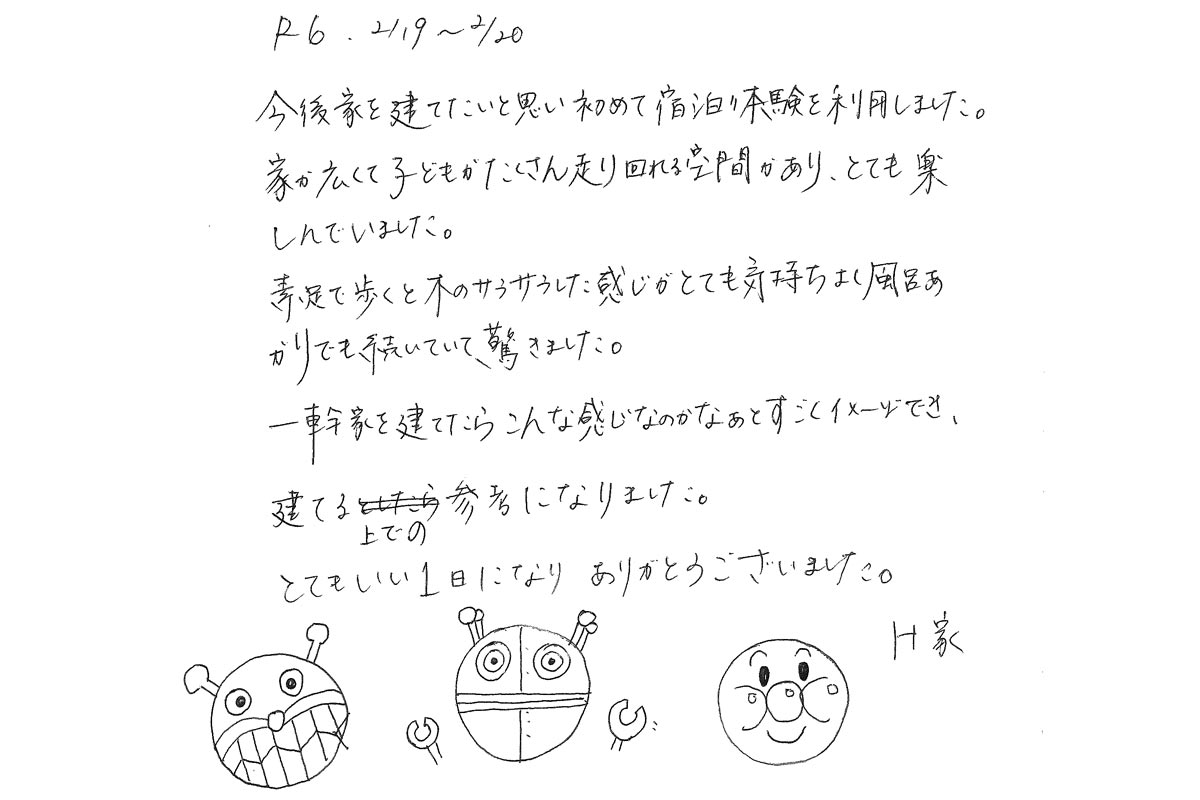 R6.2/19～2/20
今後家を建てたいと思い初めて宿泊り体験を利用しました。
家が広くて子どもがたくさん走り回れる空間があり、とても楽
しんでいました。
素足で歩くと木のサラサラした感じがとても気持ちよく風呂あ
がりでも、続いていて、驚きました。
一軒家を建てたらこんな感じなのかなぁとすごくイメージでき、
建てる としたら 参考になりました。
上での
とてもいい1日になり ありがとうございました。
H家